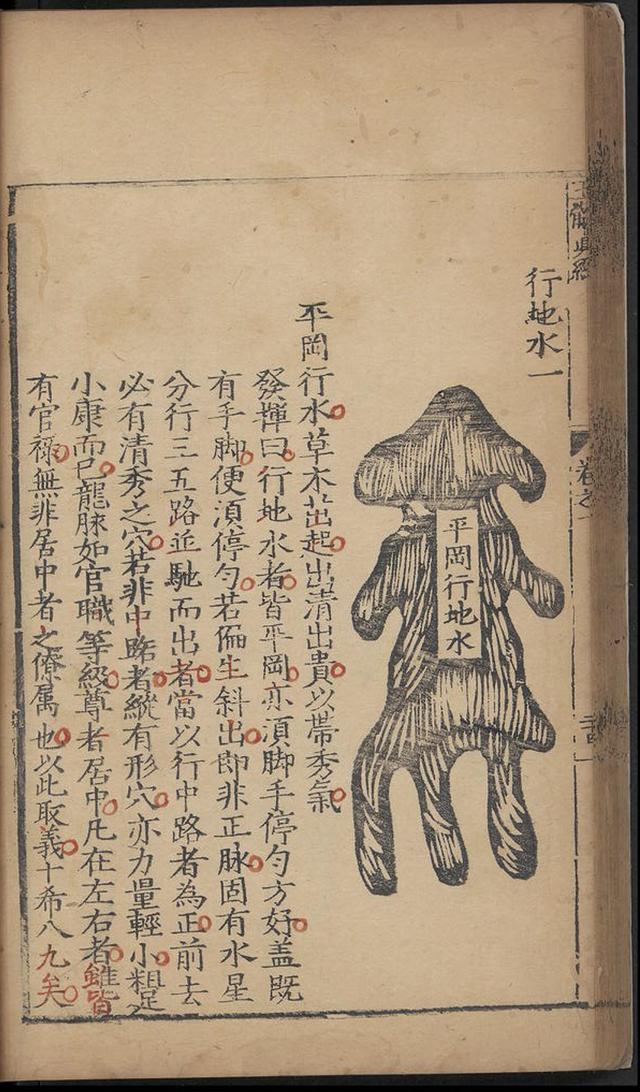 行地水一
平岡行地水
平岡行水草木茁起出清出貴以帶秀氣
發揮曰行地水者皆平岡亦須脚手停勻方好蓋既
有手脚便須停勻若偏生斜出即非正脉固有水星
分行三五路並馳而出者當以行中路者為正前去
必有清秀之穴若非中路者縱有形穴亦力量輕小粗足
小康而已龍脉如官職等級尊者居中凡在左右者雖皆
有官祿無非居中者之僚属也以此取義十希八九矣
卷之一